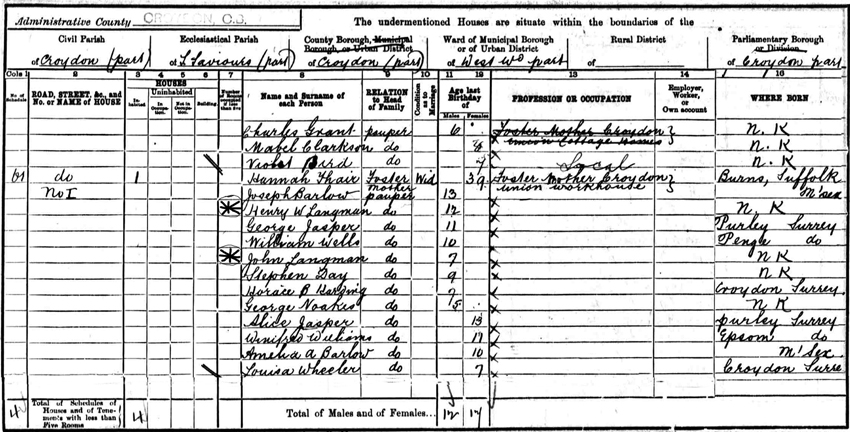 Administrative County CROYDON, C.B. The undermentioned Houses are situate within the boundaries of the
Civil Parish Ecclesiastical Parish County Borough, Municipal Borough, or Urban District Ward of Municipal Borough or of Urban District Rural District Parliamentary Borough or Division
of Croydon (part) of S Saviours (part) of Croydon (part) of West Wd part of of Croydon part
Cols 1 2 3 4 5 6 7 8 9 10 11 12 13 14 16
No. of Schedule ROAD, STREET, &c., and No. or NAME of HOUSE HOUSES Inhabited Uninhabited In Occupation Not in Occupation Building Number of Rooms occupied if less than five Name and Surname of each Person RELATION to Head of Family Condition as to Marriage Age last Birthday of Males Females PROFESSION OR OCCUPATION Employer, Worker, or Own account WHERE BORN
Charles Grant pauper 6 Foster Mother Croydon N. K
Mabel Clarkson do Union Cottage Homes N. K
Violet Bird do 7 N. K
Local
do 1 Hannah Thair Foster Mother Wid 39 Foster Mother Croydon union workhouse Burns, Suffolk
No I Joseph Barlow pauper 13 M'sex
Henry W Langman do 12 N. K
George Jasper do 11 Purley Surrey
William Wells do 10 Penge do
John Langman do 7 N K
Stephen Day do 9 N. K
Horace B Harding do 7 Croydon Surrey
George Noakes do 15 N K
Alice Jasper do 13 purley Surrey
Winifred Williams do 11 Epsom do
Amelia A Barlow do 10 M'Sex
Louisa Wheeler do 7 Croydon Surre
4 Total of Schedules of Houses and of Tenements with less than Five Rooms 4 Total of Males and of Females... 12 17